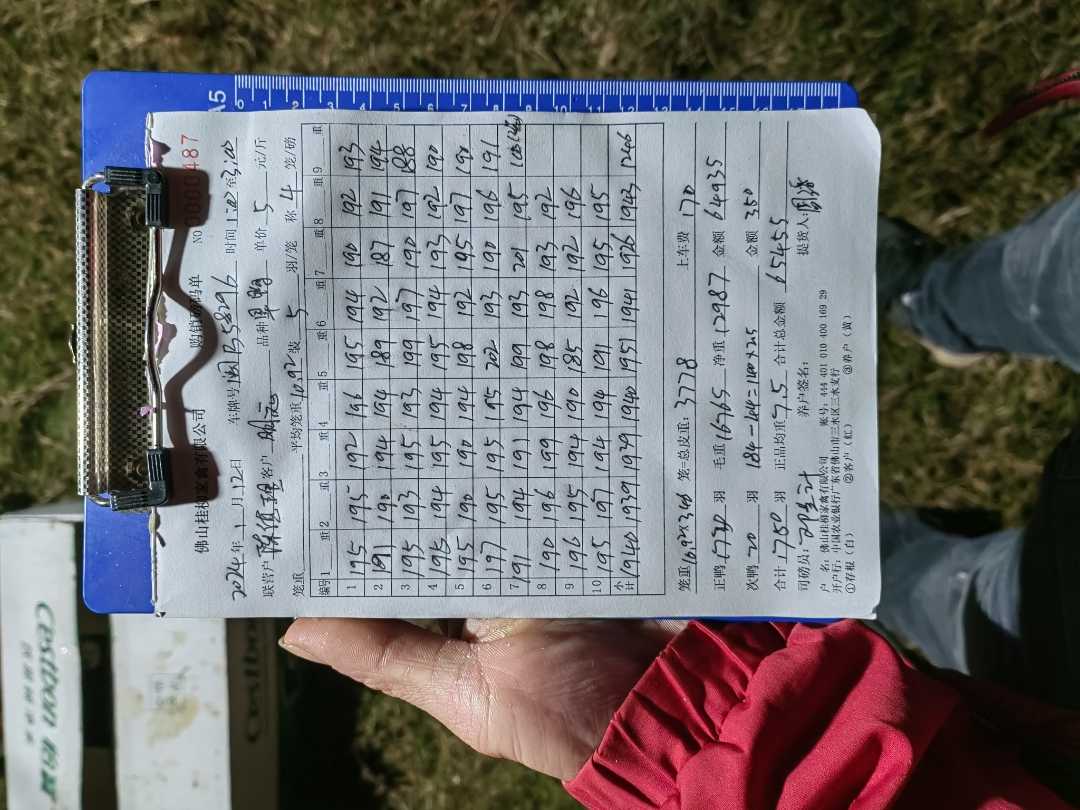 佛山桂柳家禽有限公司 购销磅码单 NO 0000487
2024年1月12日 车牌号 58296 时间 1:00 至 3:00
联营户 客户 品种 单价 5 元/斤
笼重 平均笼重 10.92 装 5 羽/笼 称 4 笼/磅
编号 1 重 2 重 3 重 4 重 5 重 6 重 7 重 8 重 9 重
1 195 195 192 196 195 194 190 192 193
2 191 190 194 194 189 192 187 191 194
3 195 193 195 193 199 197 190 197 188
4 196 194 195 194 195 194 193 192 190
5 195 190 190 194 198 192 195 197 190
6 197 195 195 195 202 193 190 196 191
7 191 194 191 194 199 193 201 195
8 190 196 199 196 198 198 193 192
9 196 195 194 190 185 192 192 196
10 195 197 194 194 191 196 195 195
小计 1940 1939 1939 1940 1951 1941 1926 1943 1246
笼重 10.92×346 笼=总皮重: 3778 上车费 170
正鸭 1730 羽 毛重 16765 净重 12987 金额 64935
次鸭 20 羽 184-44=140×2.5 金额 350
合计 1750 羽 正品均重 7.5 合计总金额 65455
司磅员: 养户签名: 提货人:
户 名: 佛山桂柳家禽有限公司 账号: 444 401 010 400 169 29
开户行: 中国农业银行广东省佛山市三水区三水支行
①存根 (白) ②客户 (红) ③养户 (黄)
A5
0 1 2 3 4 5 6 7 8 9 10 11 12 13 14 15 16 17 18
Cestbon 怡宝
Cestbon